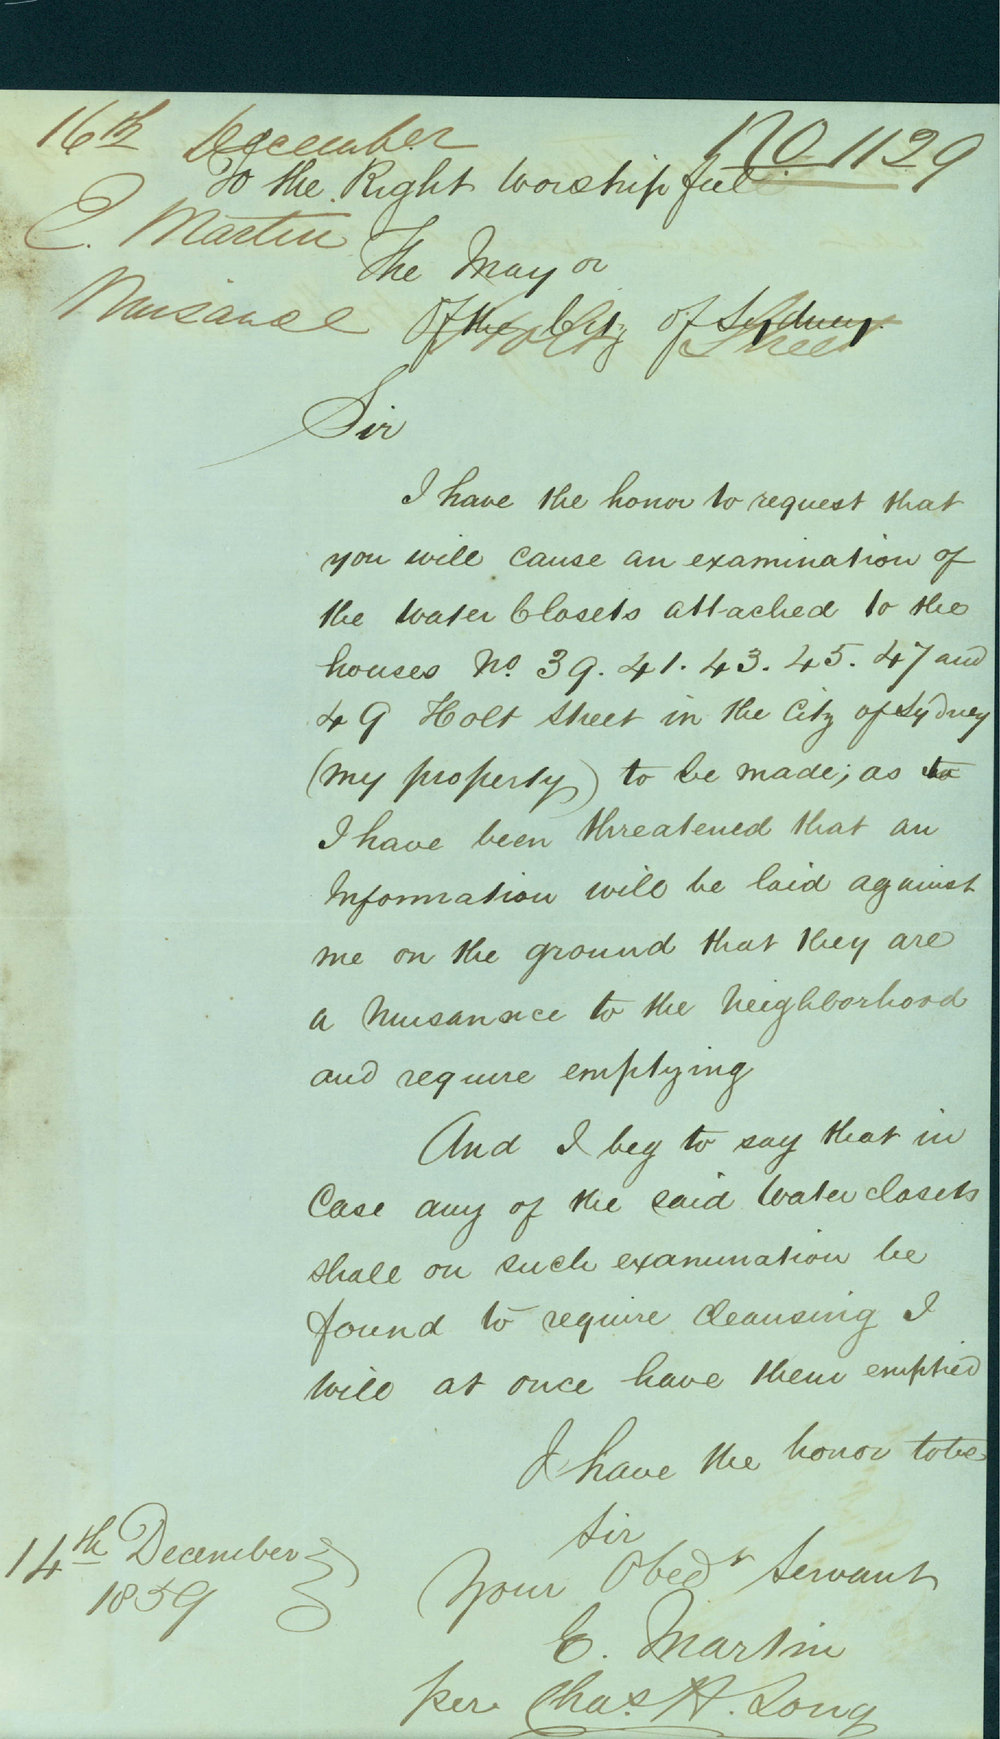 16th December
No 1129
To the Right Worshipful
E. Martin
The Mayor
Nuisance
Of the City of Sydney.
Holt Street
Sir
I have the honor to request that
you will cause an examination of
the Water Closets attached to the
houses No. 39. 41. 43. 45. 47 and
49 Holt Street in the City of Sydney
(my property) to be made; as to
I have been threatened that an
Information will be laid against
me on the ground that they are
a Nuisance to the Neighborhood
and require emptying
And I beg to say that in
Case any of the said Water closets
shall on such examination be
found to require Cleansing I
will at once have them emptied
I have the honor to be
Sir
Your Obedt Servant
14th December
1859
E. Martin
per Chas. H. Long